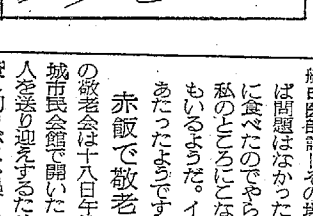 ば問題はなかった
に食べたのでやら
私のところにこな
もいるようだ。イ
あたったようです
赤飯で敬老
の敬老会は十八日午
城市民会館で開いた
人を送り迎えするた